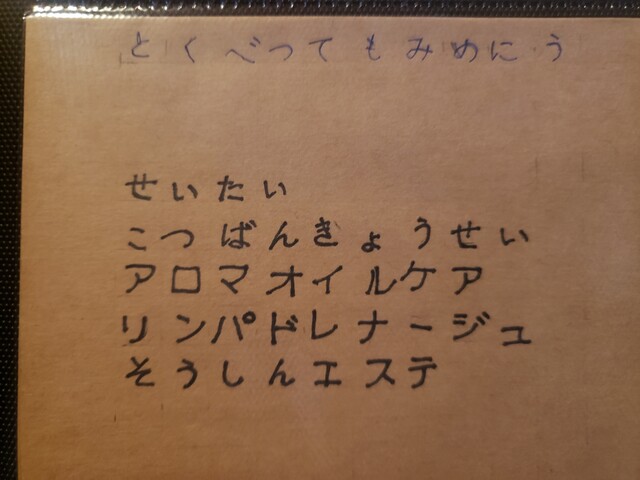 とくべつてもみめにう
せいたい
こつばんきょうせい
アロマオイルケア
リンパドレナージュ
そうしんエステ